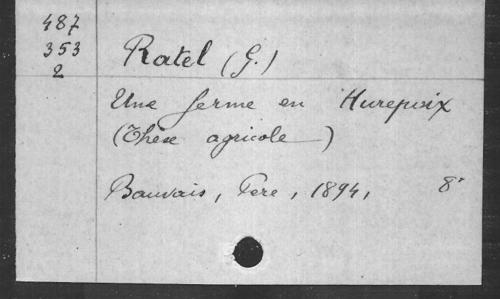 487
353
2
Ratel (G.)
Une ferme en Hurepoix
(Thèse agricole)
Bauvais, Pere, 1894, 8°